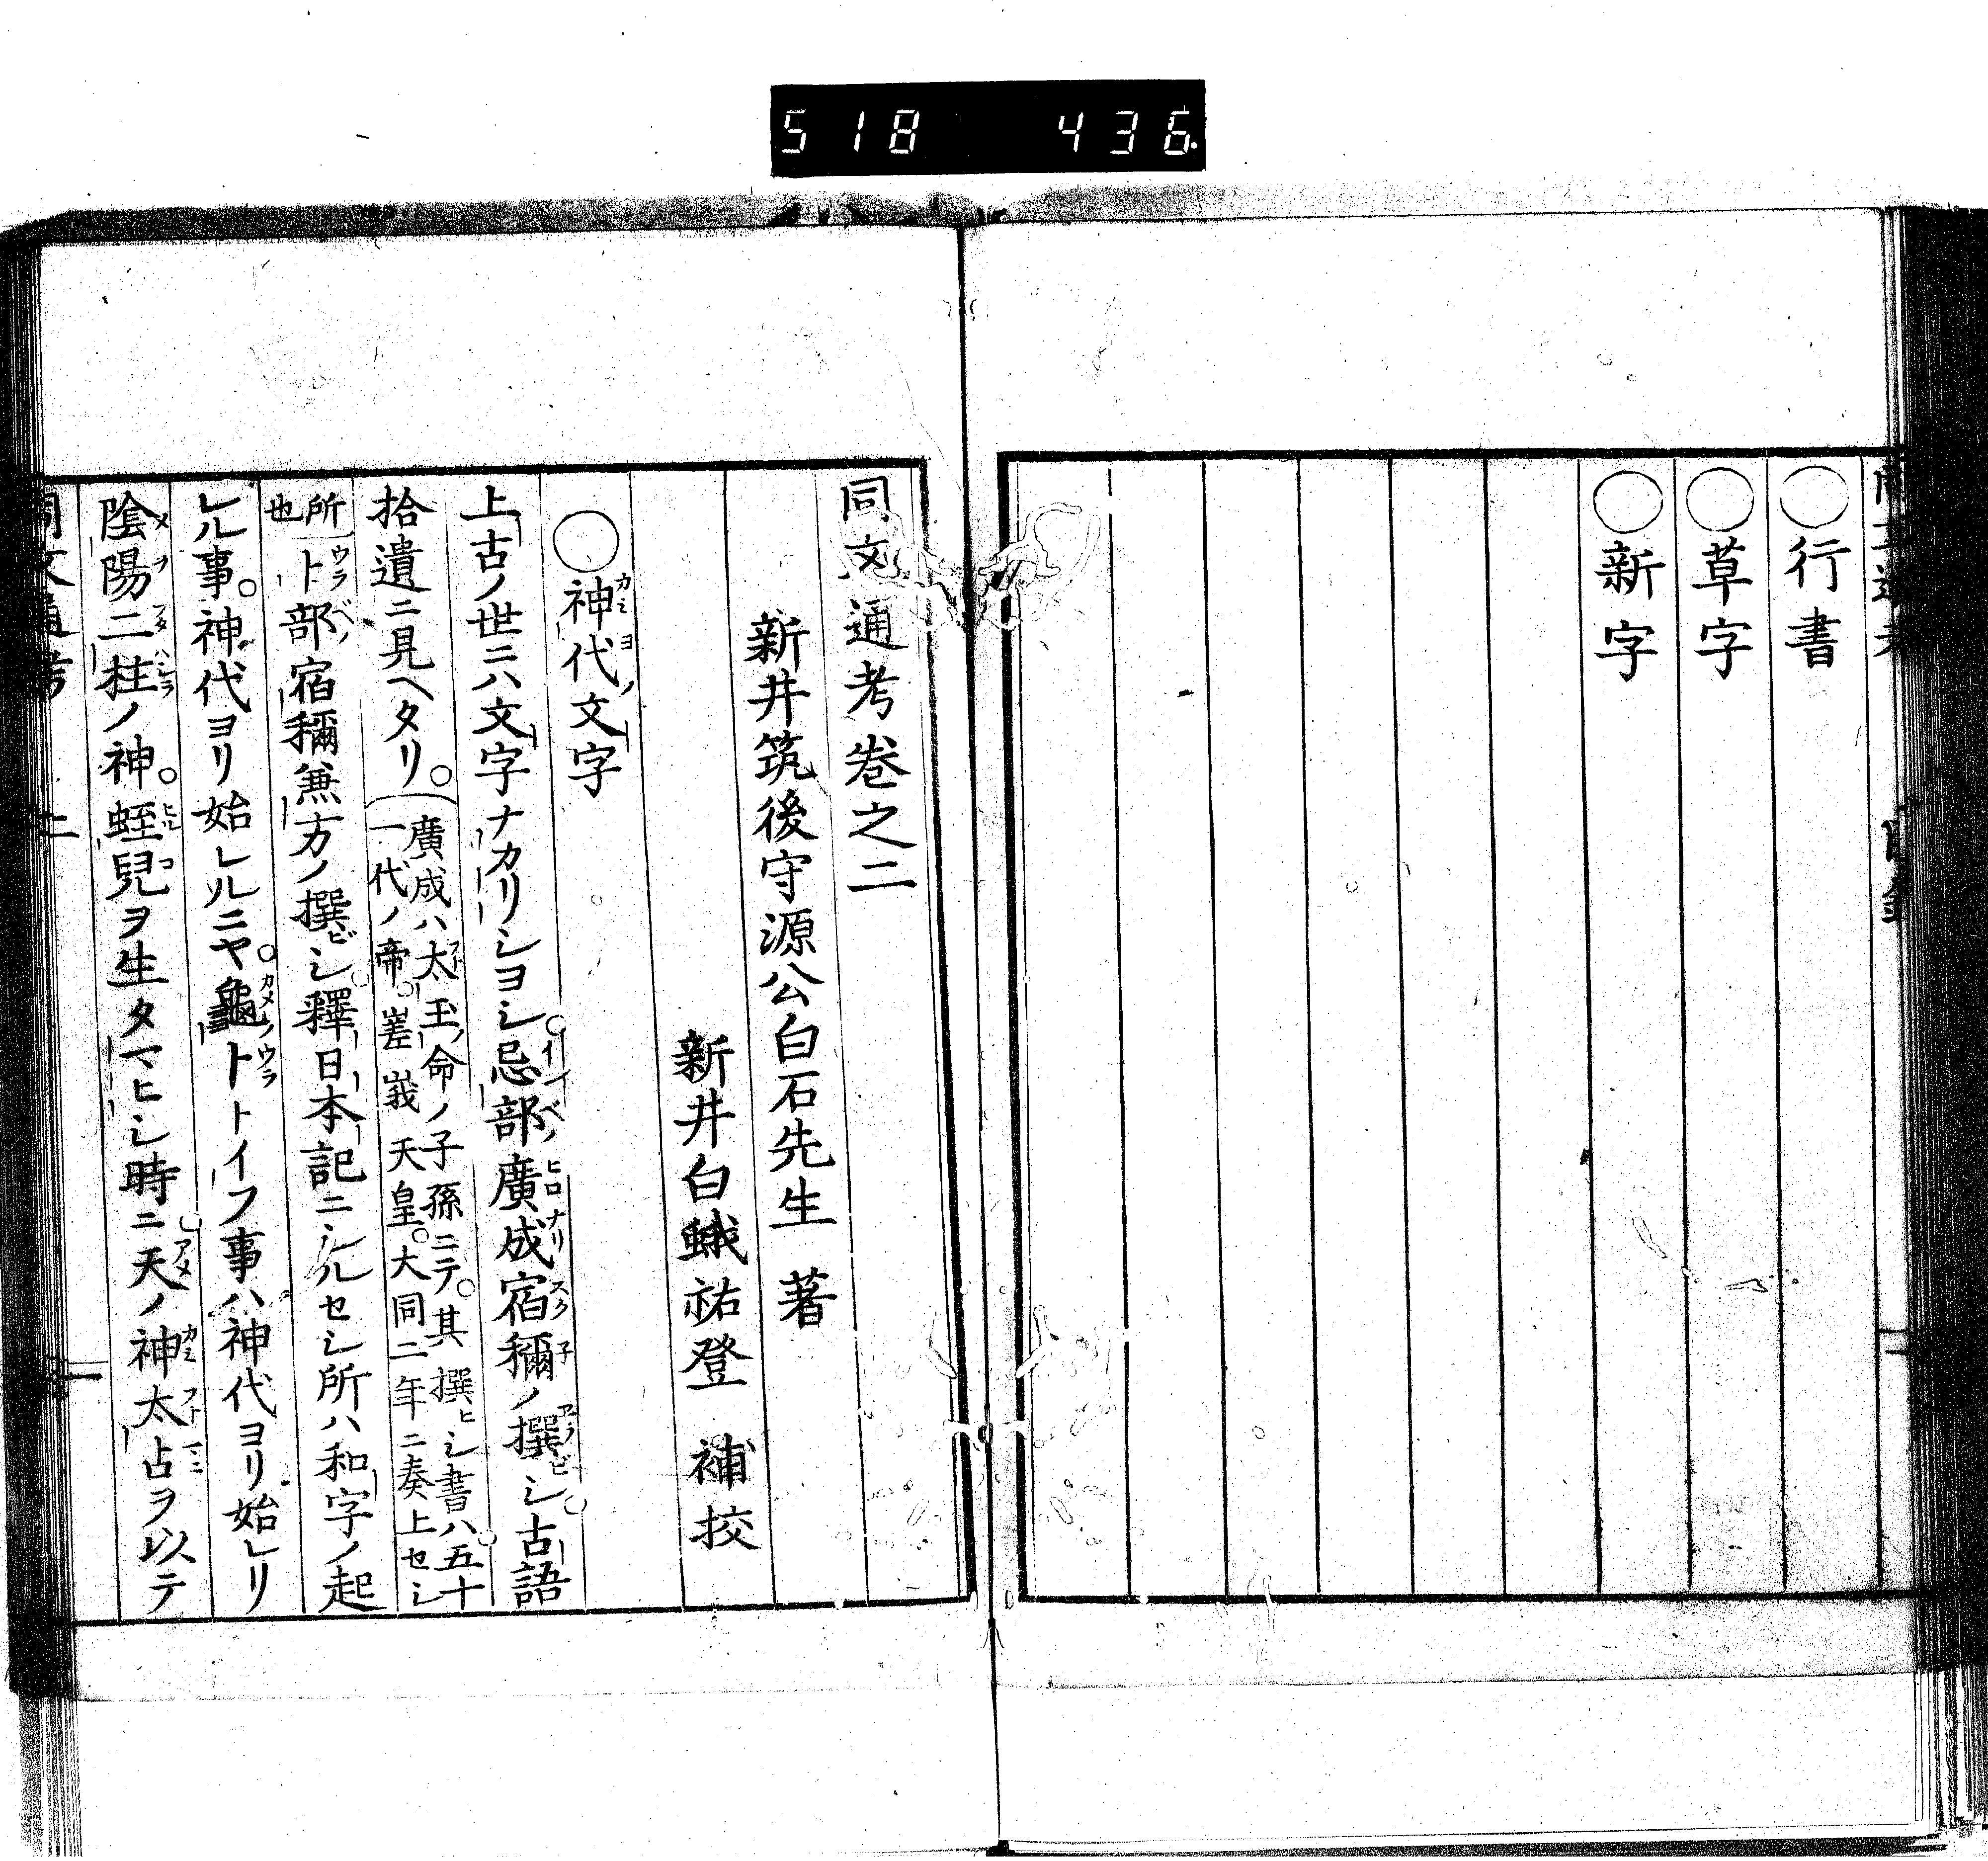 518 436
○行書
○草字
○新字
同文通考卷之二
新井筑後守源公白石先生 著
新井白蛾祐登 補挍
○神代文字
上古ノ世ニハ文字ナカリシヨシ忌部廣成宿禰ノ撰ビシ古語
拾遺ニ見ヘタリ。(廣成ハ太玉命ノ子孫ニテ。其撰ヒシ書ハ五十
一代ノ帝。嵯峩天皇。大同二年ニ奏上セシ
所也)卜部宿禰兼方ノ撰ビシ釋日本記ニシルセシ所ハ和字ノ起
レル事。神代ヨリ始レルニヤ。龜卜トイフ事ハ神代ヨリ始レリ
陰陽二柱ノ神。蛭兒ヲ生タマヒシ時ニ天ノ神太占ヲ以テ
同文通考 二